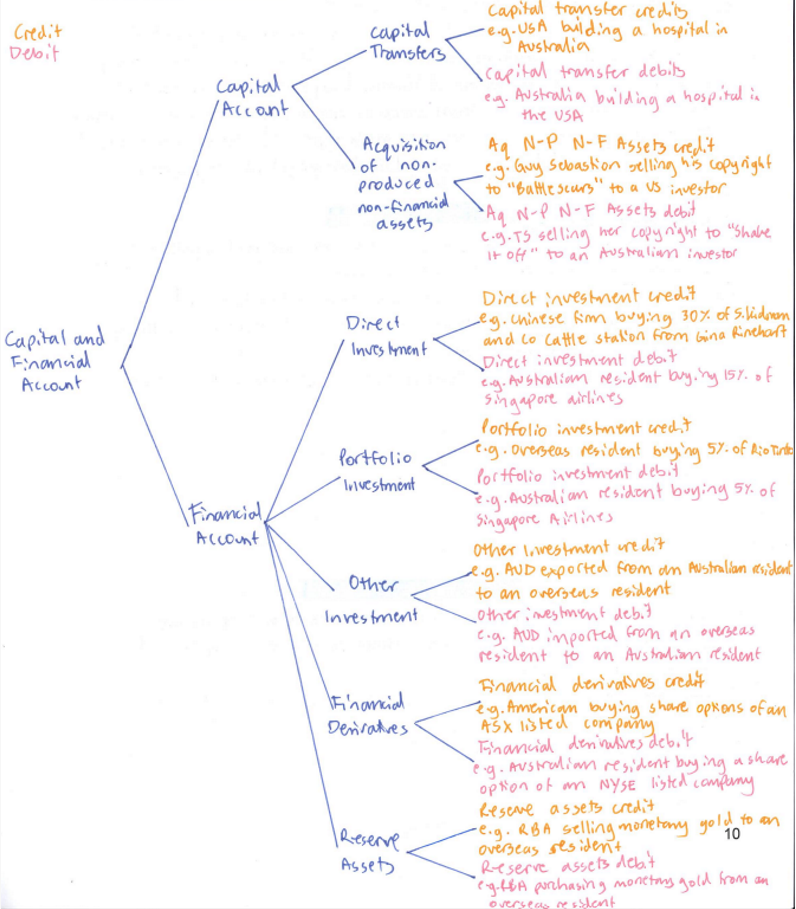 Credit
Debit
Capital and
Financial
Account
Capital
Account
Capital
Transfers
Capital transfer credits
e.g. USA building a hospital in
Australia
Capital transfer debits
eg. Australia building a hospital in
the USA
Acquisition
of non-
produced
non-financial
assets
Aq N-P N-F Assets credit
e.g. Guy Sebastion selling his copyright
to "Battlescurs" to a US investor
Aq N-P N-F Assets debit
e.g. TS selling her copyright to "Shake
it off" to an Australian investor
Financial
Account
Direct
Investment
Direct investment credit
eg. Chinese firm buying 30% of S.Kidman
and Co Cattle station from Gina Rinehart
Direct investment debit
e.g. Australian resident buying 15% of
Singapore airlines
Portfolio
Investment
Portfolio investment credit
e.g. overseas resident buying 5% of Rio Tinto
Portfolio investment debit
e.g. Australian resident buying 5% of
Singapore Airlines
Other
Investment
Other Investment credit
e.g. AUD exported from an Australian resident
to an overseas resident
Other investment debit
e.g. AUD imported from an overseas
resident to an Australian resident
Financial
Derivatives
Financial derivatives credit
e.g. American buying share options of an
ASX listed company
Financial derivatives debit
e.g. Australian resident buying a share
option of an NYSE listed company
Reserve
Assets
Reserve assets credit
e.g. RBA selling monetary gold to an
overseas resident
10
Reserve assets debit
e.g. RBA purchasing monetary gold from an
overseas resident